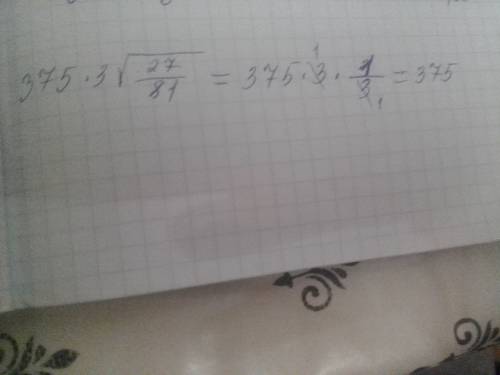 375 · 3√(27/81) = 375 · 3 · 1/3 = 375